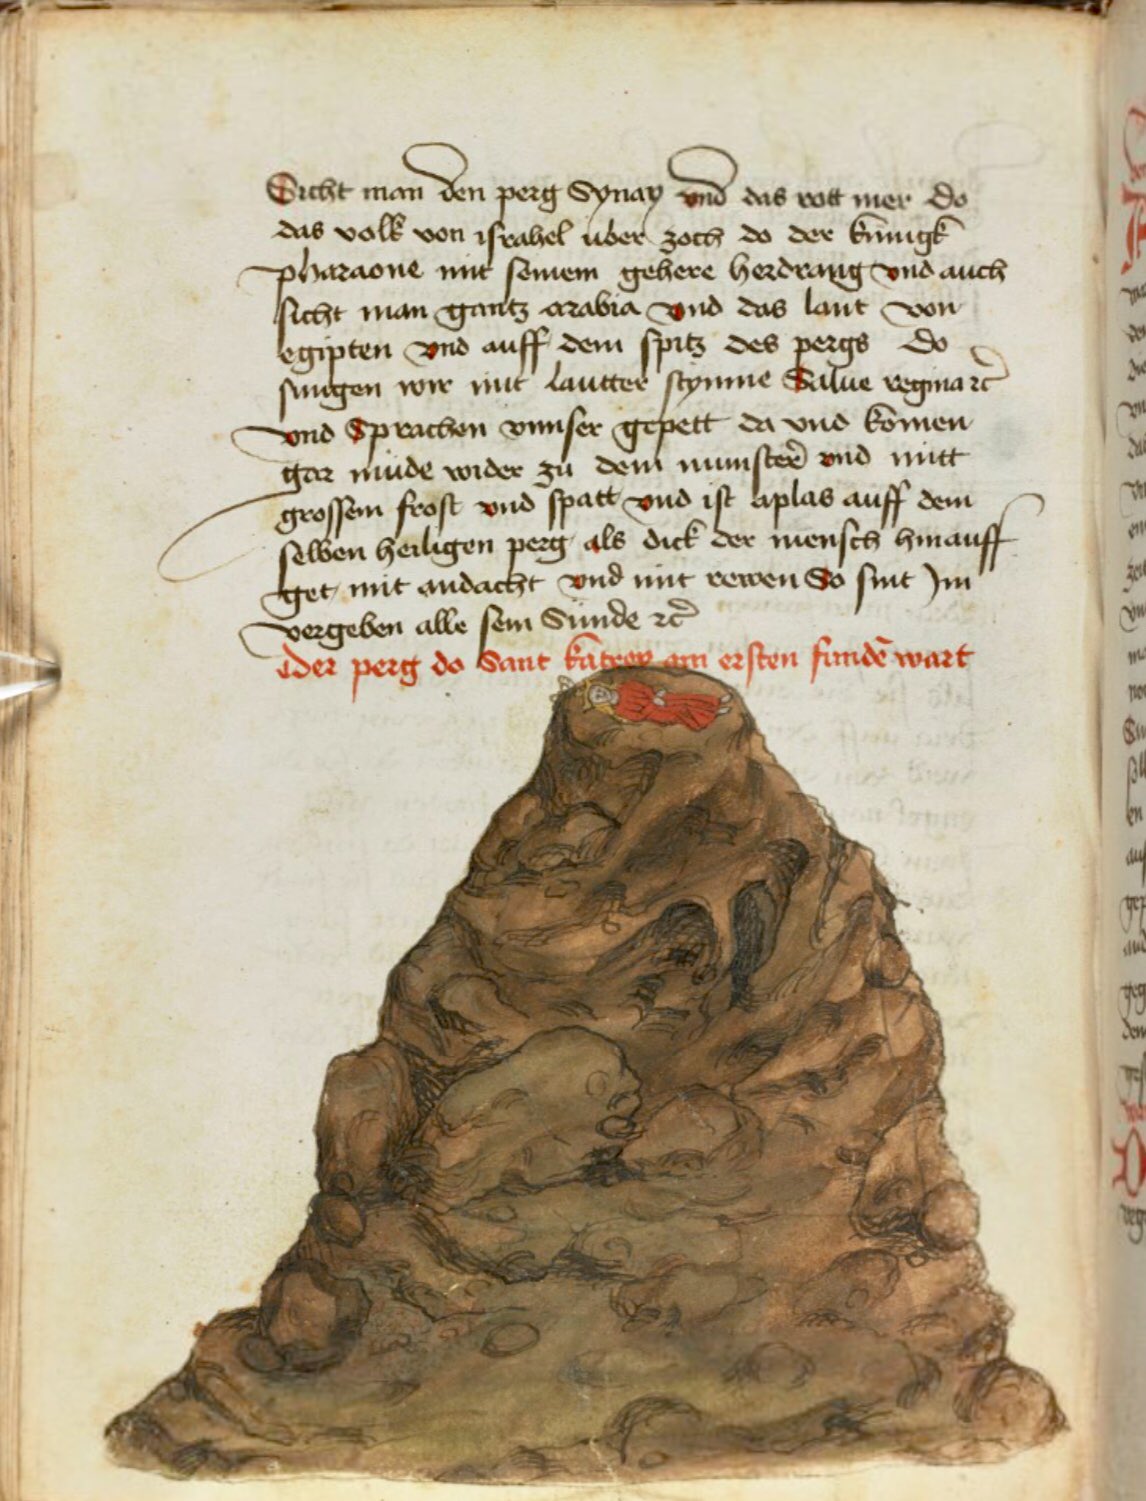 Sicht man den perg Synay vnd das rott mer do
das volk von israhel uber zoch do der kunigk
pharaone mit seinem gehere herdrang vnd auch
sicht man gantz arabia vnd das lant von
egipten vnd auff dem spitz des pergs do
singen wir mit lautter stymme Salue regina ꝛc
vnd Sprachen vnnser gepett da vnd komen
gar müde wider zü dem munster vnd mitt
grossem frost vnd spatt vnd ist aplas auff dem
selben heiligen perg als dick der mensch hinauff
get mit andacht vnd mit rewen So sint Im
vergeben alle sein Sünde ꝛc
der perg do Sant katrey am ersten funde wart